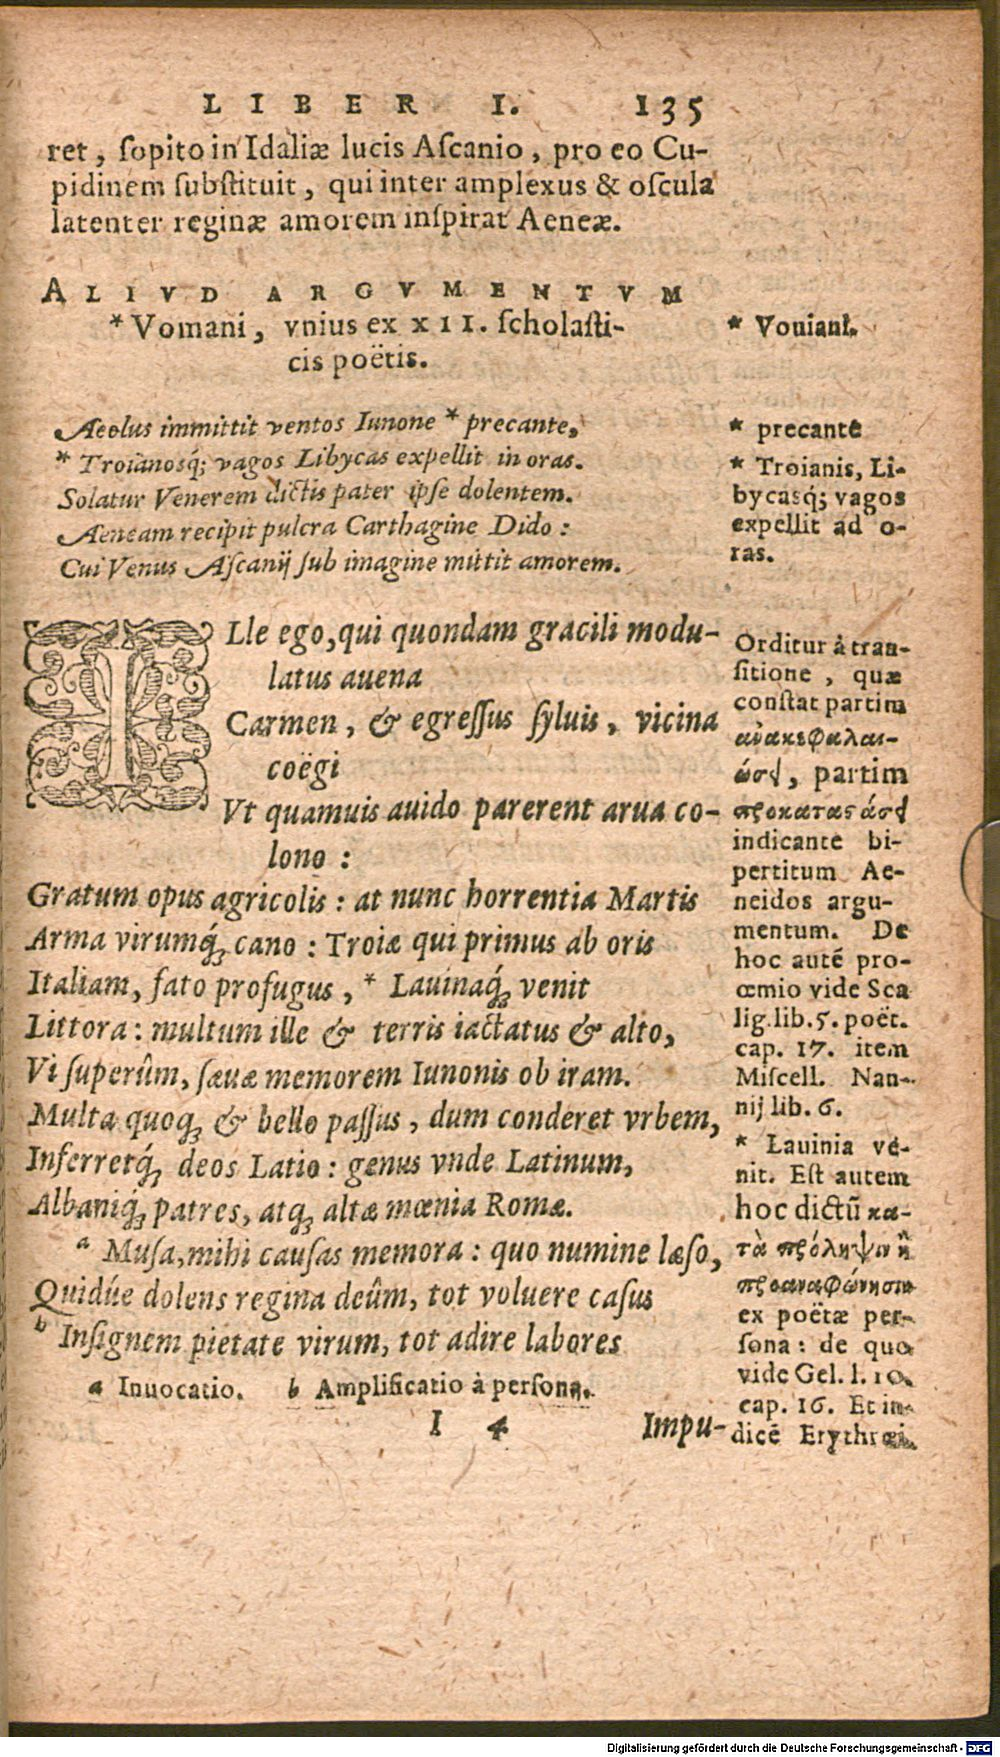 LIBER I. 135
ret, ſopito in Idaliæ lucis Aſcanio, pro eo Cu-
pidinem ſubſtituit, qui inter amplexus & oſcula
latenter reginæ amorem inſpirat Aeneæ.
ALIVD ARGVMENTVM
*Vomani, vnius ex XII. ſcholaſti-
cis poëtis.
* Vouiani.
Aeolus immittit ventos Iunone * precante,
* Troianosq́; vagos Libycas expellit in oras.
Solatur Venerem dictis pater ipſe dolentem.
Aeneam recipit pulcra Carthagine Dido:
Cui Venus Aſcanij ſub imagine mittit amorem.
* precante
* Troianis, Li-
bycasq́; vagos
expellit ad o-
ras.
ILle ego, qui quondam gracili modu-
latus auena
Carmen, & egreſſus ſyluis, vicina
coëgi
Vt quamuis auido parerent arua co-
lono:
Gratum opus agricolis: at nunc horrentia Martis
Arma virumq́; cano: Troiæ qui primus ab oris
Italiam, fato profugus, * Lauinaq́; venit
Littora: multum ille & terris iactatus & alto,
Vi ſuperûm, ſæuæ memorem Iunonis ob iram.
Multa quoq; & bello paſſus, dum conderet vrbem,
Inferretq́; deos Latio: genus vnde Latinum,
Albaniq́; patres, atq; altæ mœnia Romæ.
a Muſa, mihi cauſas memora: quo numine læſo,
Quidúe dolens regina deûm, tot voluere caſus
b Inſignem pietate virum, tot adire labores
Orditur à tran-
ſitione, quæ
conſtat partim
ἀνακεφαλαι-
ώσι, partim
προκαταστάσι
indicante bi-
pertitum Ae-
neidos argu-
mentum. De
hoc autē pro-
œmio vide Sca
lig. lib. 5. poët.
cap. 17. item
Miſcell. Nan-
nij lib. 6.
* Lauinia ve-
nit. Eſt autem
hoc dictū κα-
τὰ πρόληψιν ἢ
προαναφώνησιν
ex poëtæ per-
ſona: de quo
vide Gel. l. 10.
cap. 16. Et in-
dicē Erythræi.
a Inuocatio. b Amplificatio à perſona.
I 4 Impu-
Digitalisierung gefördert durch die Deutsche Forschungsgemeinschaft - DFG